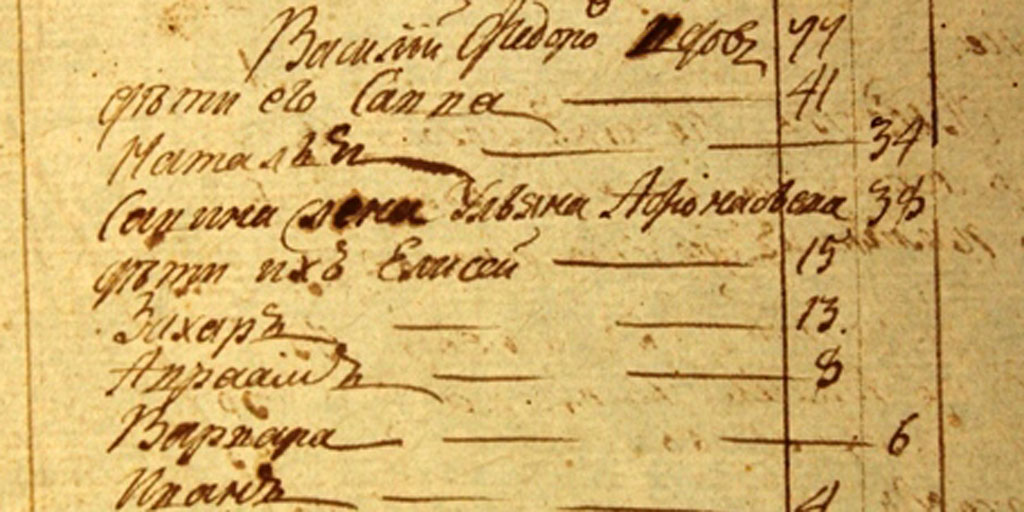 Василий Федоров вдовъ 77
дѣти его Савва 41
Наталья 34
Савина жена Ульяна Афонасьева 38
дѣти ихъ Елисей 15
Захаръ 13.
Авраамъ 8
Варвара 6
Иванъ 4